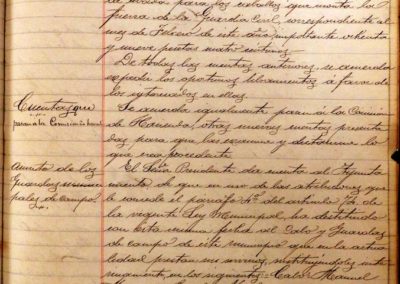 de cebada para los caballos que monta la
fuerza de la Guardia Civil, correspondiente al
mes de Febrero de este año, importante ochenta
y nueve pesetas cuatro centimos.
De todas las cuentas anteriores, se acuerda
expedir los oportunos libramientos á favor de
los interesados en ellas.
Cuentas que
pasan á la Comisión de
Se acuerda igualmente pasen á la Comisión
de Hacienda, otras nuevas cuentas presenta
das para que las examine y dictamine lo
que crea procedente.
Asunto de los
Guardas munici
pales de campo.
El Señor Presidente dá cuenta al Ayunta
miento de que en uso de las atribuciones que
le concede el parrafo 4º del articulo 74 de
la vigente Ley Municipal, ha destituido
con esta misma fecha al Cabo y Guardias
de campo de este municipio que en la actua
lidad prestan sus servicios, sustituyendoles inte
rinamente, en los siguientes: Cabo: Manuel